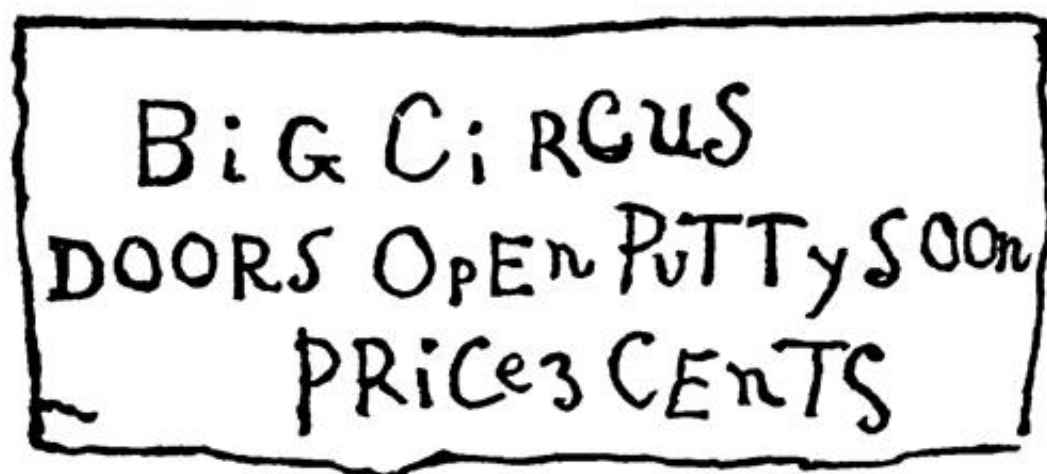 BiG CiRCUS
DOORS OPEn PuTTy SOOn
PRiCe 3 CEnTS